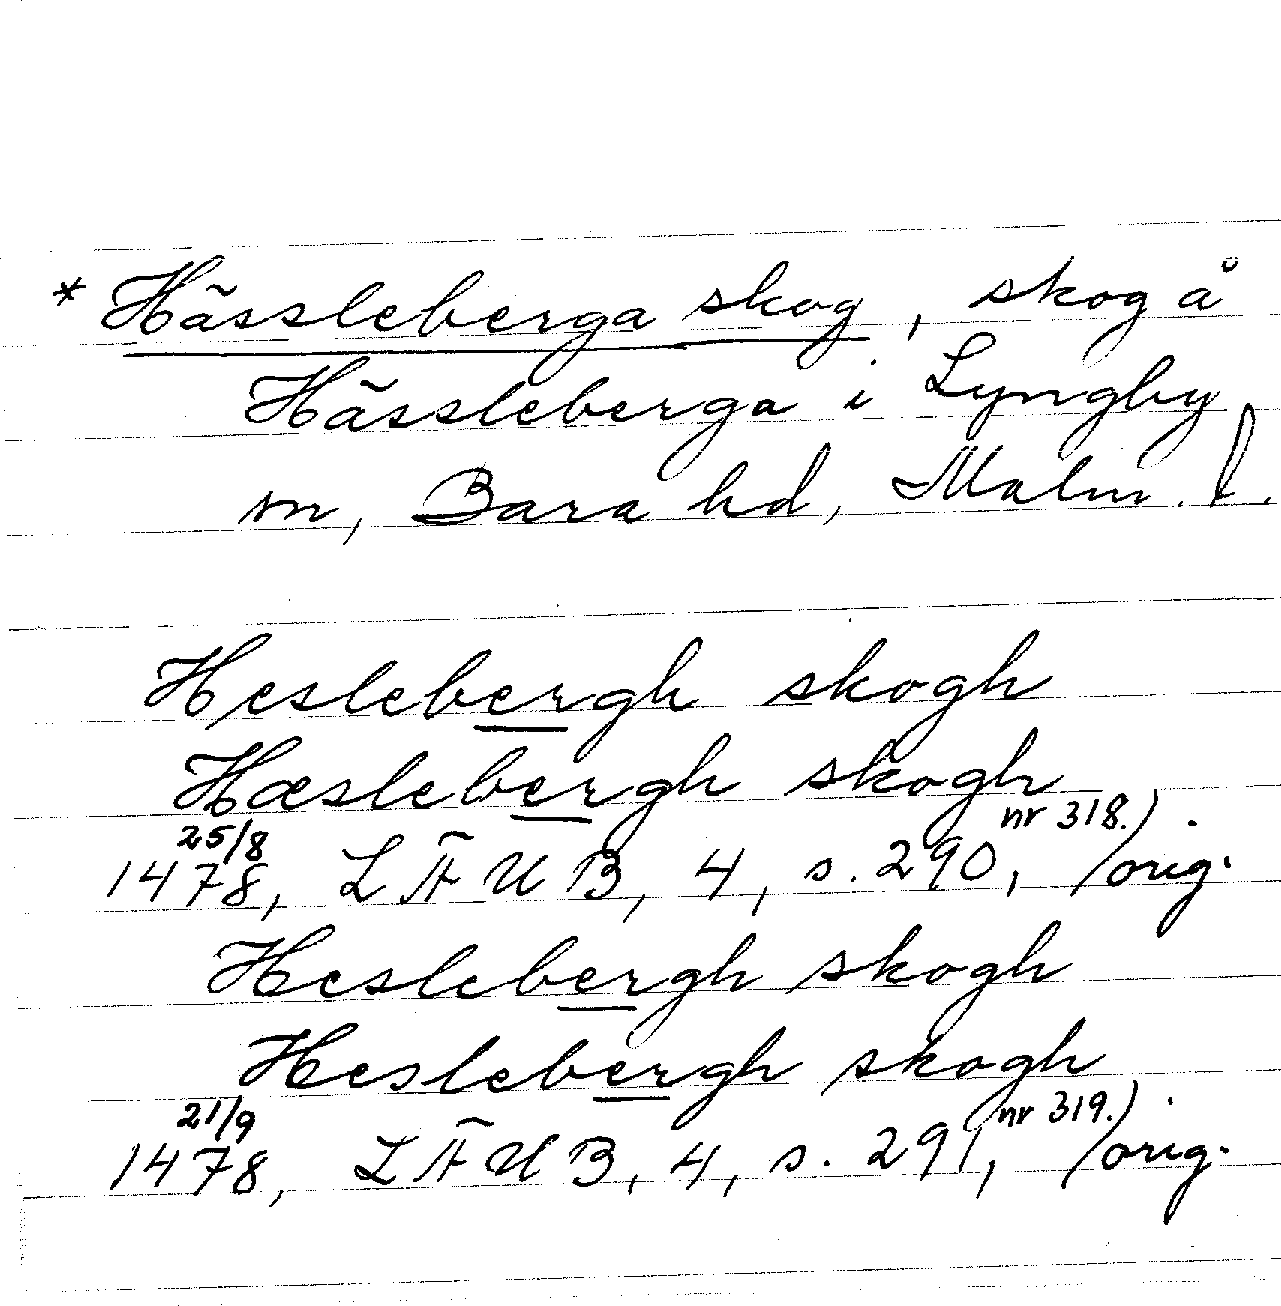 * Hässleberga skog, skog å
Hässleberga i Lyngby
sn, Bara hd, Malm. l.
Heslebergh skogh
Hæslebergh skogh
25/8 1478, LÄUB, 4, s. 290, nr 318.) /orig.
Heslebergh skogh
Heslebergh skogh
21/9 1478, LÄUB, 4, s. 291, nr 319.) /orig.